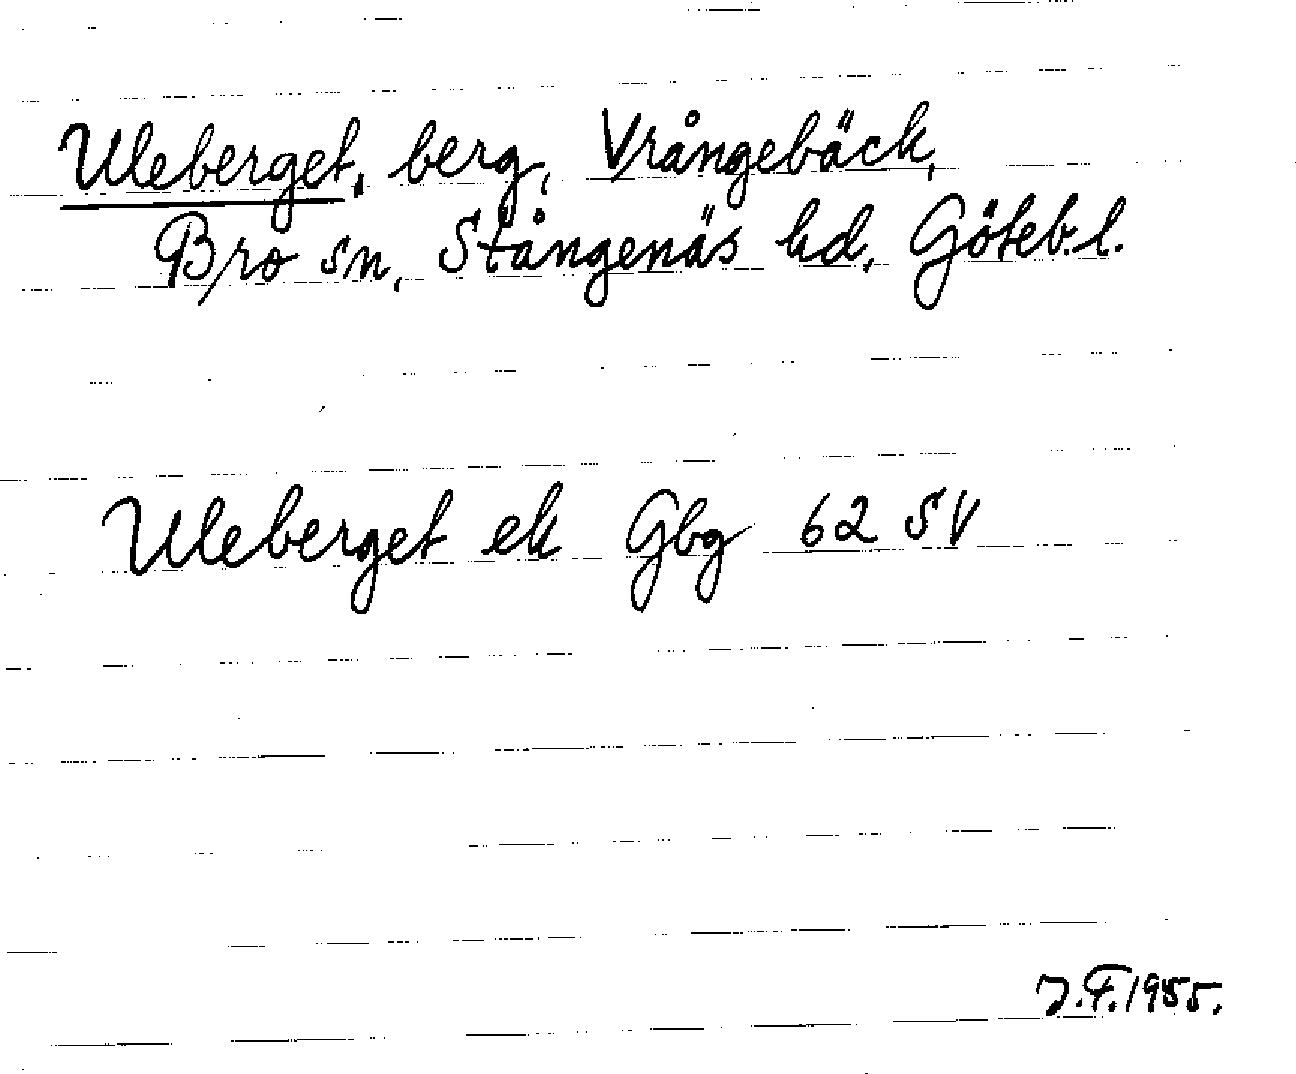 Uleberget, berg, Vrångebäck,
Bro sn, Stångenäs hd, Göteb.l.
Uleberget ek Gbg 62 SV
J.F. 1955.